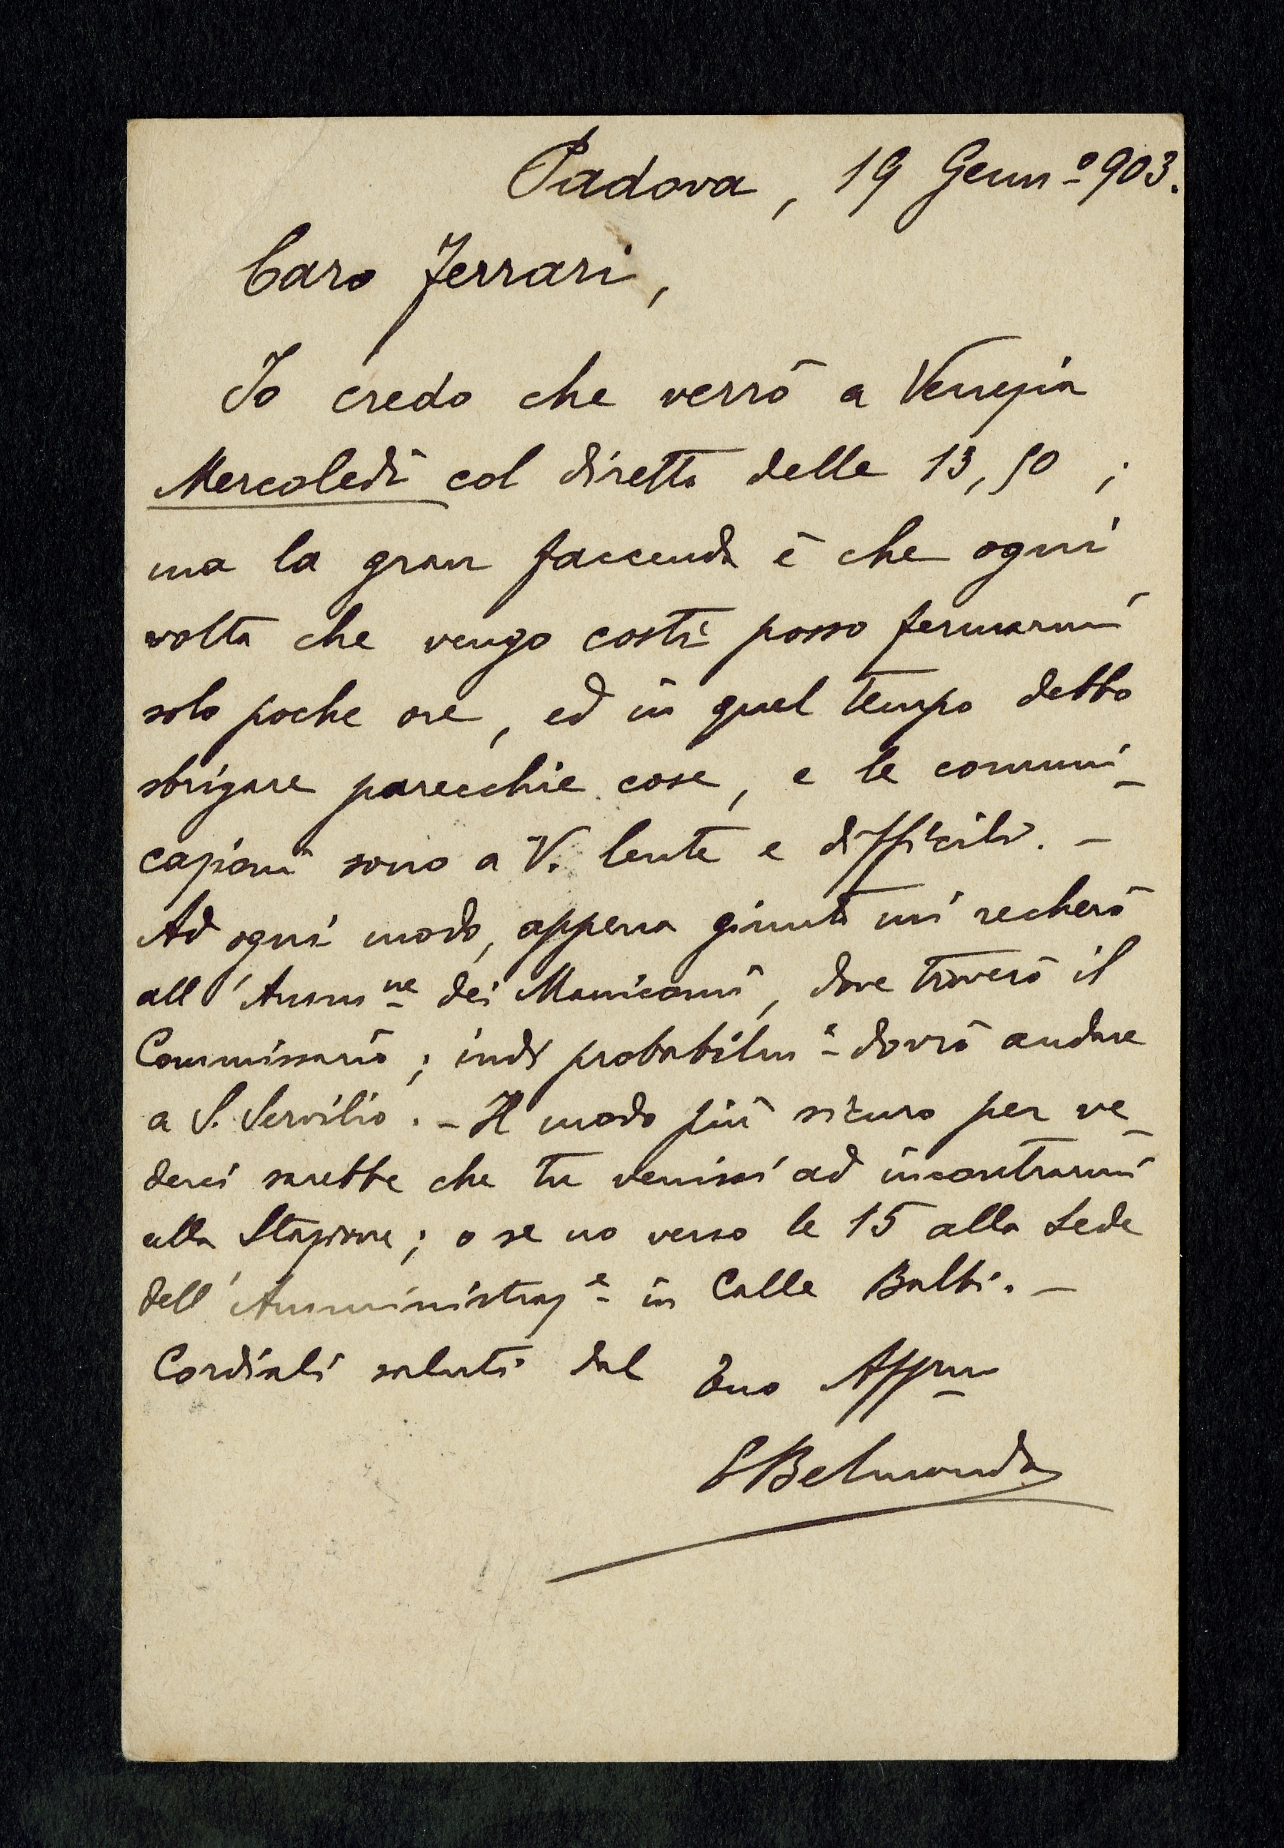 Padova, 19 Genno 903.
Caro Ferrari,
Io credo che verrò a Venezia
Mercoledì col diretto delle 13,50;
ma la gran faccenda è che ogni
volta che vengo costì posso fermarmi
solo poche ore, ed in quel tempo debbo
sbrigare parecchie cose, e le comuni-
cazioni sono a V. lente e difficili. -
Ad ogni modo, appena giunto mi recherò
all'Ammne dei Manicomi, dove troverò il
Commissario; indi probabilme dovrò andare
a S. Servilio. - Il modo più sicuro per ve-
derci sarebbe che tu venissi ad incontrarmi
alla Stazione; o se no verso le 15 alla sede
dell'Amministraze in Calle Balbi. -
Cordiali saluti dal Tuo Affmo
EBelmondo